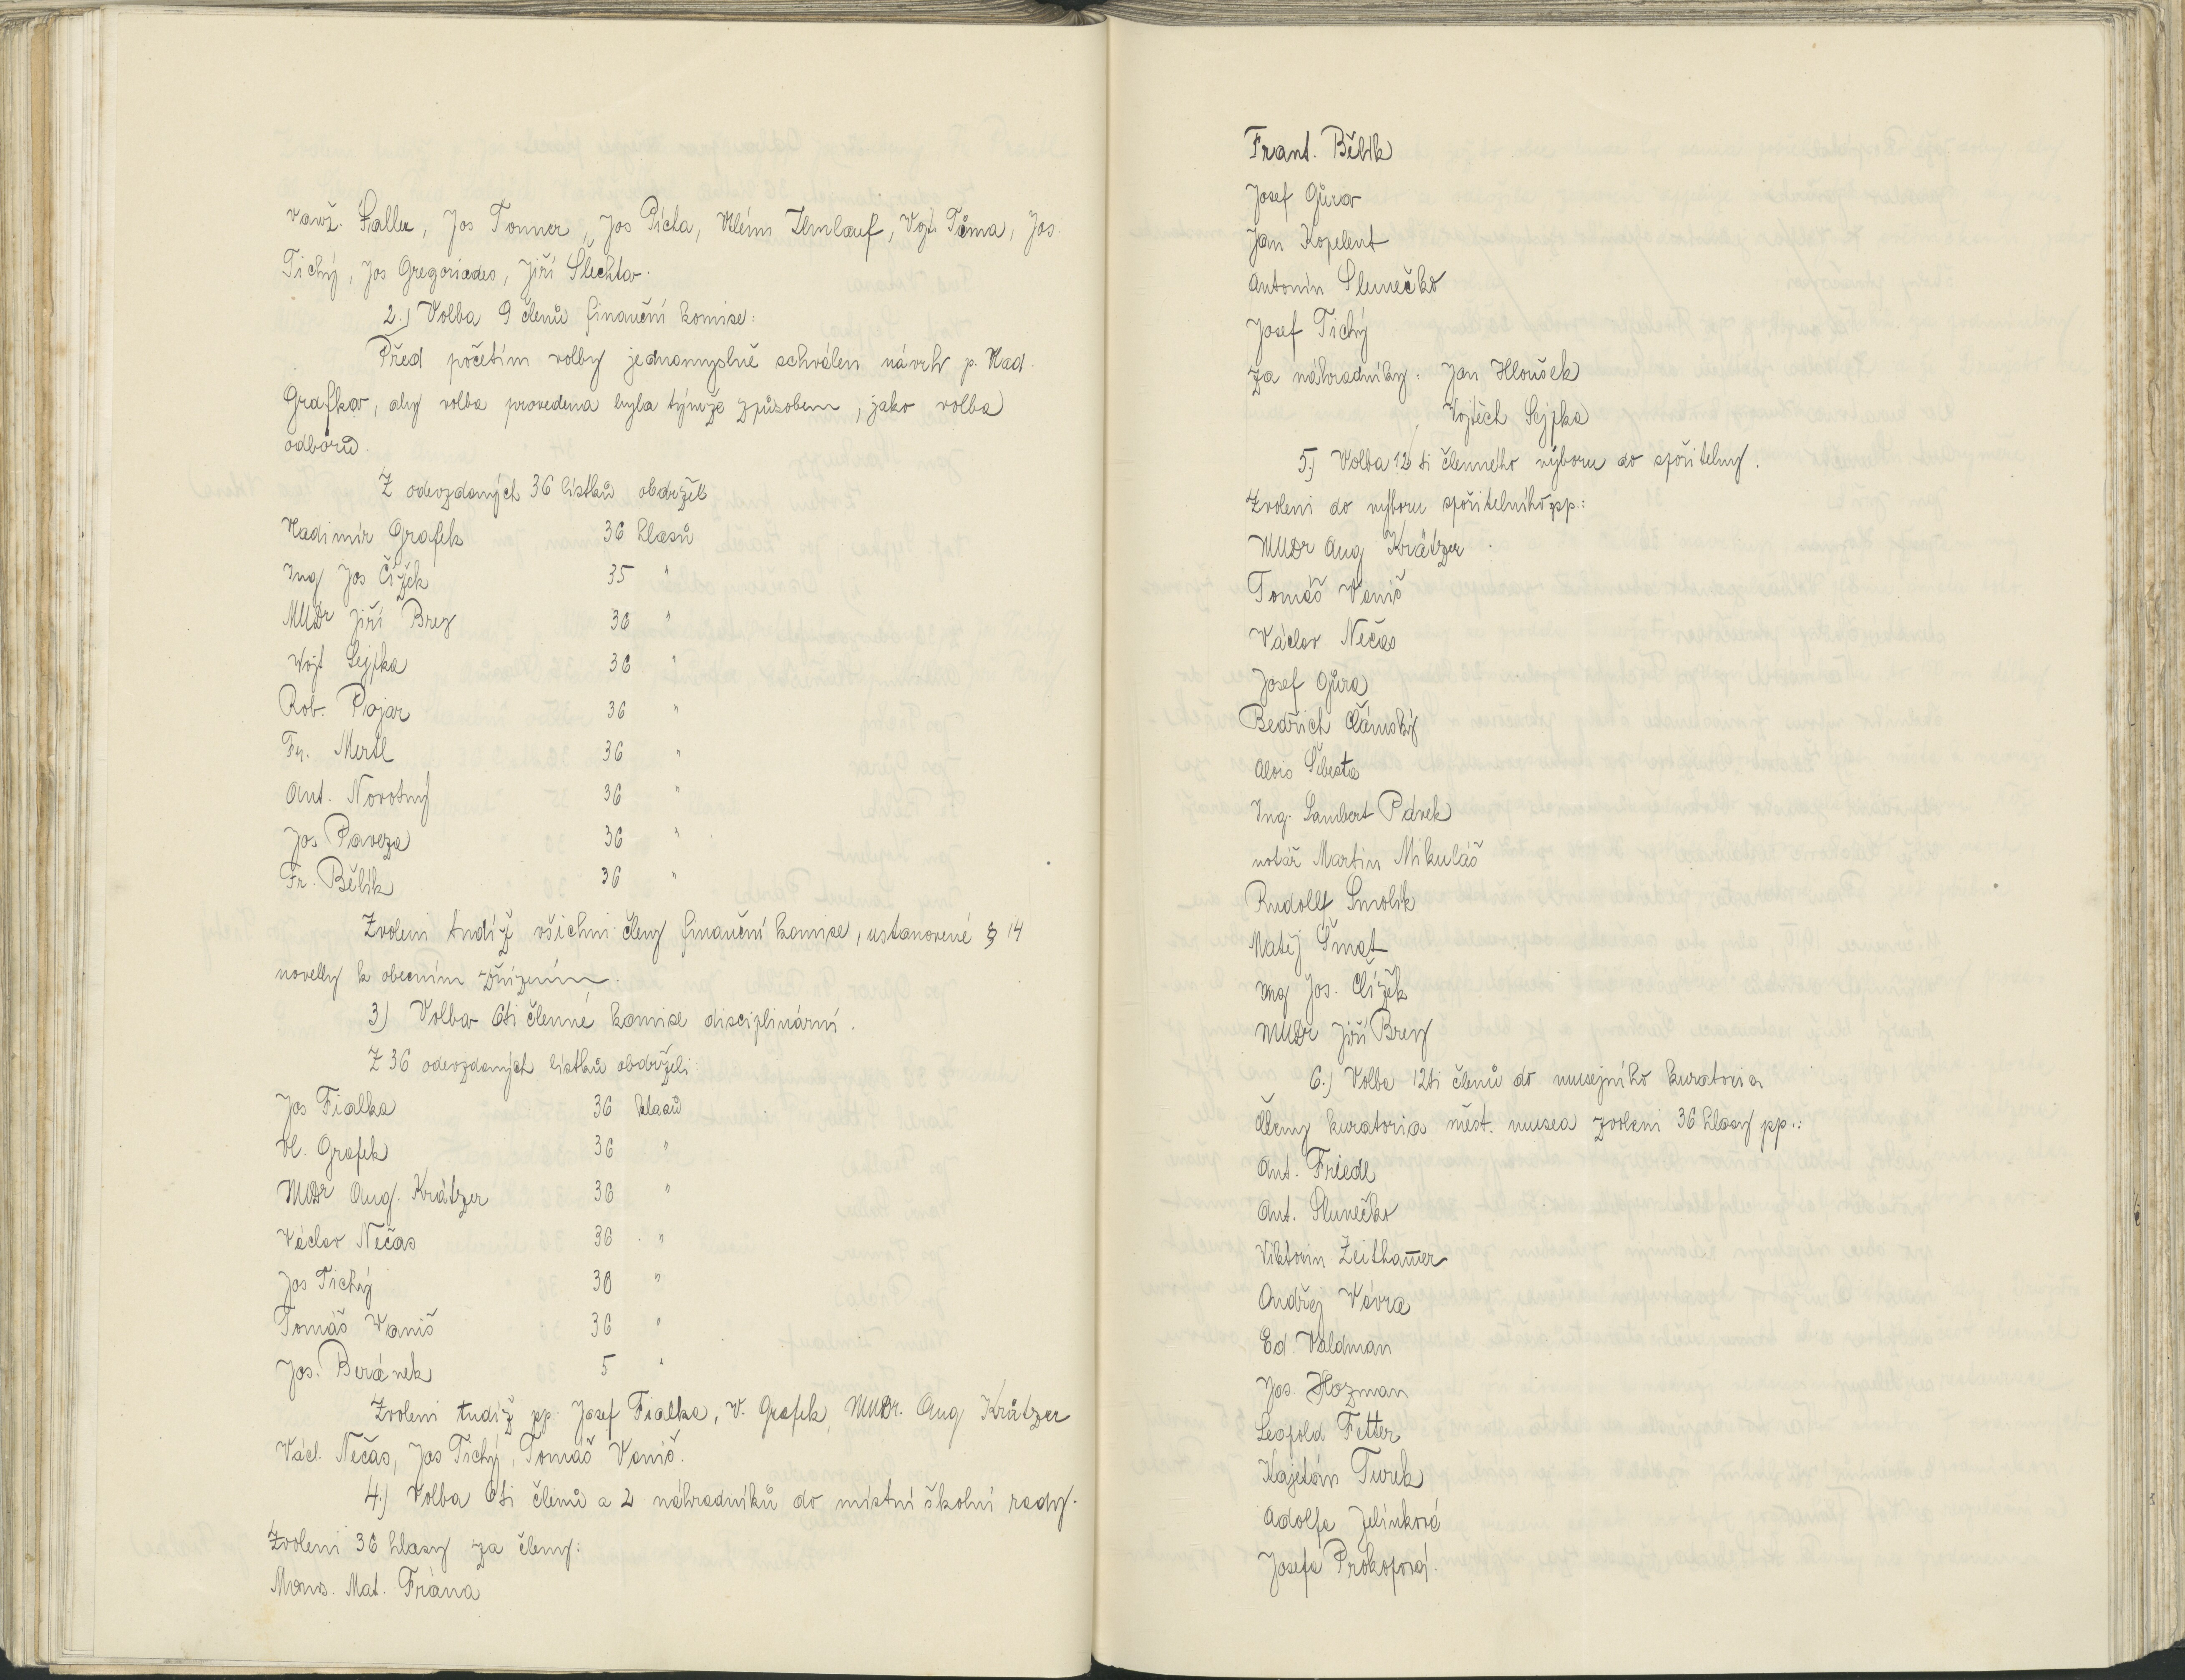 vavř. Faller, Jos Tonner, Jos Picha, Klim Ilmlauf, Vojt. Tůma, Jos.
Tichý, Jos Gregoriades, Jiří Šlechta.
2.) Volba 9 členů finanční komise:
Před početím volby jednomyslně schválen návrh p. Vlad.
Grafka, aby volba provedena byla týmže způsobem, jako volba
odborů.
Z odevzdaných 36 lístků obdržel:
Vladimír Grafek 36 hlasů
Ing Jos Čížek 35 "
MUDr Jiří Brey 36 "
Vojt Sejpka 36 "
Rob. Pajar 36 "
Fr. Mertl 36 "
Ant. Novotný 36 "
Jos Paveza 36 "
Fr. Bělík 36 "
Zvoleni tudíž všichni členy finanční komise, ustanovené § 14
novelly k obecním zřízením.
3) Volba 6ti členné komise disciplinární.
Z 36 odevzdaných lístků obdrželi:
Jos Fialka 36 hlasů
Vl. Grafek 36 "
MUDr Aug. Krátzer 36 "
Václav Nečas 36 "
Jos Tichý 30 "
Tomáš Vaniš 36 "
Jos. Beránek 5 "
Zvoleni tudíž pp. Josef Fialka, V. Grafek, MUDr. Aug Krátzer
Václ. Nečas, Jos Tichý, Tomáš Vaniš.
4.) Volba 6ti členů a 2 náhradníků do místní školní rady.
Zvoleni 36 hlasy za členy:
Mons. Mat. Frána
Frant. Bělík
Josef Gůra
Jan Kopelent
Antonín Slunečko
Josef Tichý
Za náhradníky: Jan Hloušek
Vojtěch Sejpka
5.) Volba 12 ti členného výboru do spořitelny.
Zvoleni do výboru spořitelního pp.:
MUDr Aug Krátzer
Tomáš Vaniš
Václav Nečas
Josef Gůra
Bedřich Čámský
Alois Šibesta
Ing. Lambert Pávek
notář Martin Mikuláš
Rudolf Smolík
Matěj Šmat
Ing Jos. Čížek
MUDr Jiří Brey
6.) Volba 12ti členů do musejního kuratoria
Členy kuratoria měst. musea zvoleni 36 hlasy pp.:
Ant. Friedl
Ant. Slunečko
Viktorin Zeitham̅er
Ondřej Vávra
Ed. Valdman
Jos. Hozman
Leopold Fetter
Kajetán Turek
Adolfa Jelínková
Josefa Prokopová.